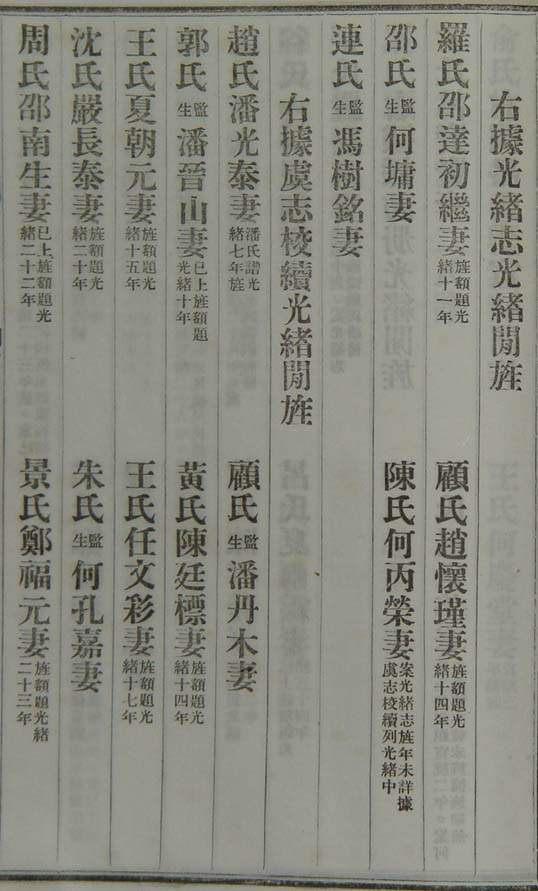 右據光緒志光緒間旌
羅氏邵達初繼妻旌額題光緒十一年　顧氏趙懷瑾妻旌額題光緒十四年
邵氏監生何墉妻　陳氏何丙榮妻案光緒志旌年未詳據虞志校續列光緒中
連氏監生馮樹銘妻
右據虞志校續光緒間旌
趙氏潘光泰妻潘氏譜光緒七年旌　顧氏監生潘丹木妻
郭氏監生潘晉山妻已上旌額題光緒十年　黃氏陳廷標妻旌額題光緒十四年
王氏夏朝元妻旌額題光緒十五年　王氏任文彩妻旌額題光緒十七年
沈氏嚴長泰妻旌額題光緒二十年　朱氏監生何孔嘉妻
周氏邵南生妻已上旌額題光緒二十二年　景氏鄭福元妻旌額題光緒二十三年